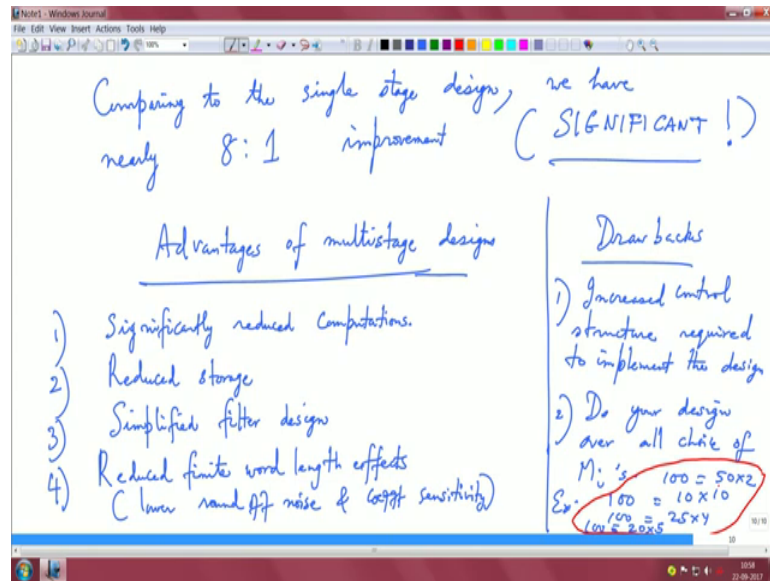 Note1 - Windows Journal
File Edit View Insert Actions Tools Help
100%
Comparing to the single stage design, we have
nearly 8:1 improvement (SIGNIFICANT!)
Advantages of multistage designs
1) Significantly reduced computations.
2) Reduced storage
3) Simplified filter design
4) Reduced finite word length effects
(lower round off noise & coefft sensitivity)
Drawbacks
1) Increased control
structure required
to implement the design
2) Do your design
over all choice of
Mi's. 100 = 50x2
Ex: 100 = 10x10
100 = 25x4
100 = 20x5
10/10
10
10:58
22-09-2017